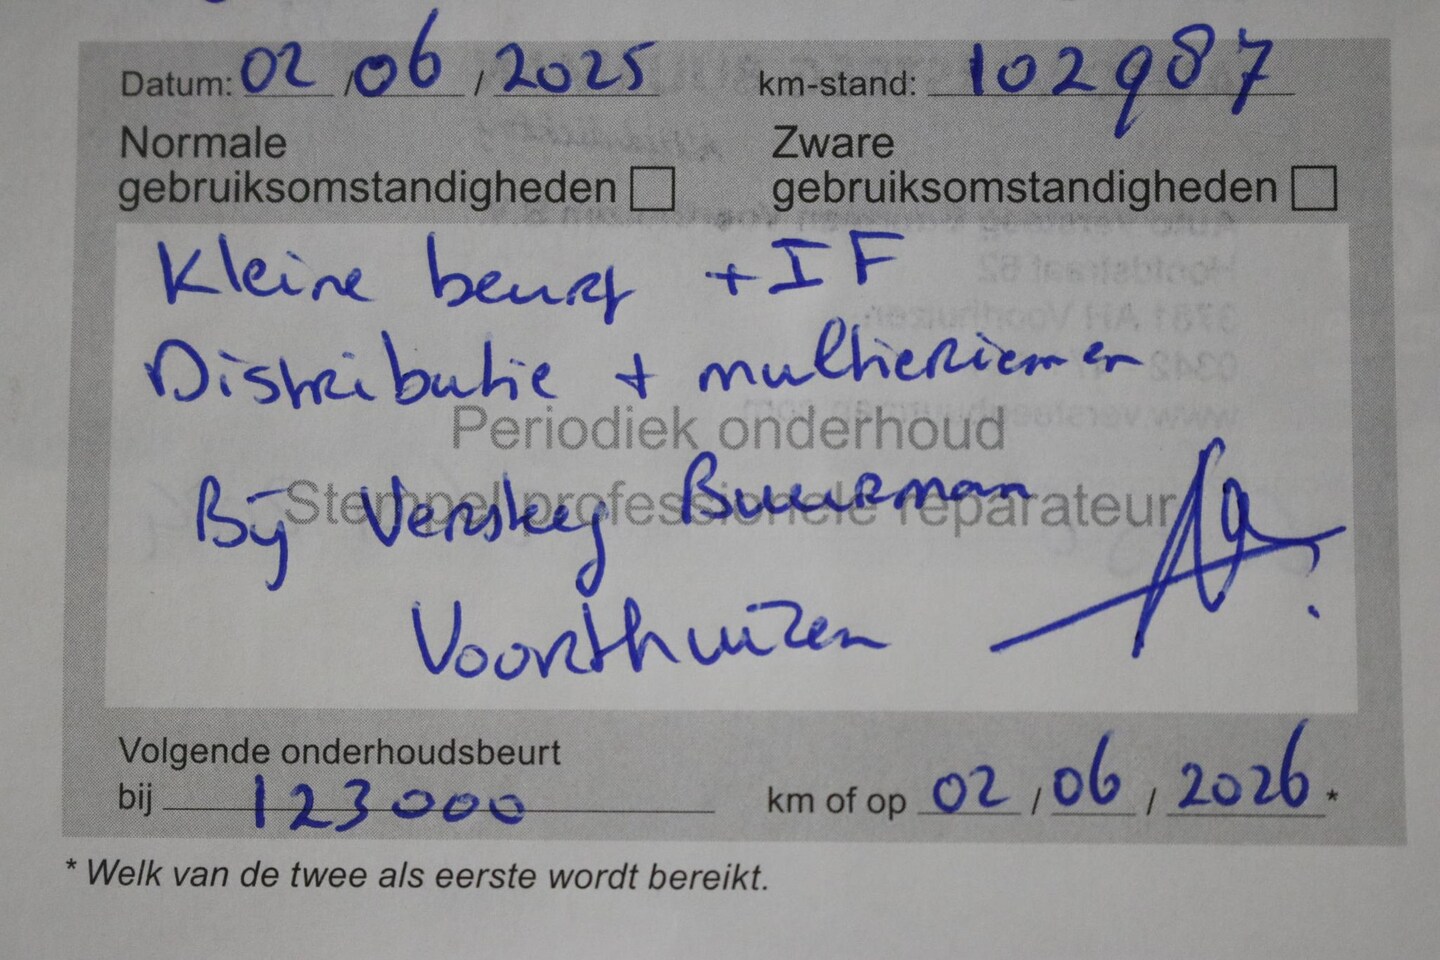 Datum: 02 / 06 / 2025 km-stand: 102987
Normale gebruiksomstandigheden Zware gebruiksomstandigheden
Kleine beurt + IF
Distributie + multieriemen
Periodiek onderhoud
Stempel professionele reparateur
Bij Versteeg Buurman
Voorthuizen
Volgende onderhoudsbeurt
bij 123000 km of op 02 / 06 / 2026 *
* Welk van de twee als eerste wordt bereikt.